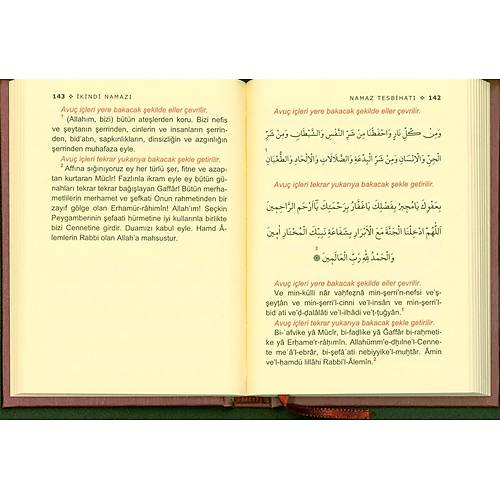 143 ❖ İKİNDİ NAMAZI
Avuç içleri yere bakacak şekilde eller çevrilir.
1 (Allahım, bizi) bütün ateşlerden koru. Bizi nefis
ve şeytanın şerrinden, cinlerin ve insanların şerrin-
den, bid'atın, sapkınlıkların, dinsizliğin ve azgınlığın
şerrinden muhafaza eyle.
Avuç içleri tekrar yukarıya bakacak şekle getirilir.
2 Affına sığınıyoruz ey her türlü şer, fitne ve azap-
tan kurtaran Mücîr! Fazlınla ikram eyle ey bütün gü-
nahları tekrar tekrar bağışlayan Gaffâr! Bütün merha-
metlilerin merhamet ve şefkati Onun rahmetinden bir
zayıf gölge olan Erhamür-râhimîn! Allah'ım! Seçkin
Peygamberinin şefaati hürmetine iyi kullarınla birlikte
bizi Cennetine girdir. Duamızı kabul eyle. Hamd Â-
lemlerin Rabbi olan Allah'a mahsustur.
NAMAZ TESBİHATI ❖ 142
Avuç içleri yere bakacak şekilde eller çevrilir.
وَمِنْ كُلِّ نَارٍ وَاحْفَظْنَا مِنْ شَرِّ النَّفْسِ وَالشَّيْطَانِ وَمِنْ شَرِّ
الْجِنِّ وَالْإِنْسَانِ وَمِنْ شَرِّ الْبِدْعَةِ وَالضَّلَالَاتِ وَالْإِلْحَادِ وَالطُّغْيَانِ 1
Avuç içleri tekrar yukarıya bakacak şekle getirilir.
بِعَفْوِكَ يَامُجِيرُ بِفَضْلِكَ يَاغَفَّارُ بِرَحْمَتِكَ يَاأَرْحَمَ الرَّاحِمِينَ
اَللّٰهُمَّ اَدْخِلْنَا الْجَنَّةَ مَعَ الْاَبْرَارِ بِشَفَاعَةِ نَبِيِّكَ الْمُخْتَارِ اٰمِينَ
وَالْحَمْدُ لِلّٰهِ رَبِّ الْعَالَمِينَ 2
Avuç içleri yere bakacak şekilde eller çevrilir.
Ve min-külli nâr vaḥfeẓnâ min-şerri'n-nefsi ve'ş-
şeyṭân ve min-şerri'l-cinni ve'l-insân ve min-şerri'l-
bid'ati ve'd-ḍalâlâti ve'l-ilḥâdi ve't-ṭuğyân.1
Avuç içleri tekrar yukarıya bakacak şekle getirilir.
Bi-'afvike yâ Mücîr, bi-faḍlike yâ Ğaffâr bi-raḥmeti-
ke yâ Erḥame'r-râḥimîn. Allahümme'd-ḫilne'l-Cennete-
te me'â'l-ebrâr, bi-şefâ'ati nebiyyike'l-muḫtâr. Âmin
ve'l-ḥamdü lillâhi Rabbi'l-Âlemîn.2